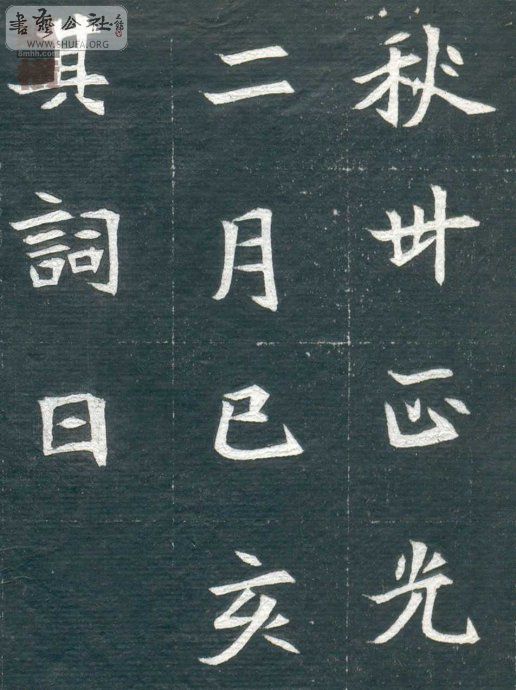 秋卅正光
二月己亥
其詞曰
書藝公社
WWW.SHUFA.ORG
8mhh.com